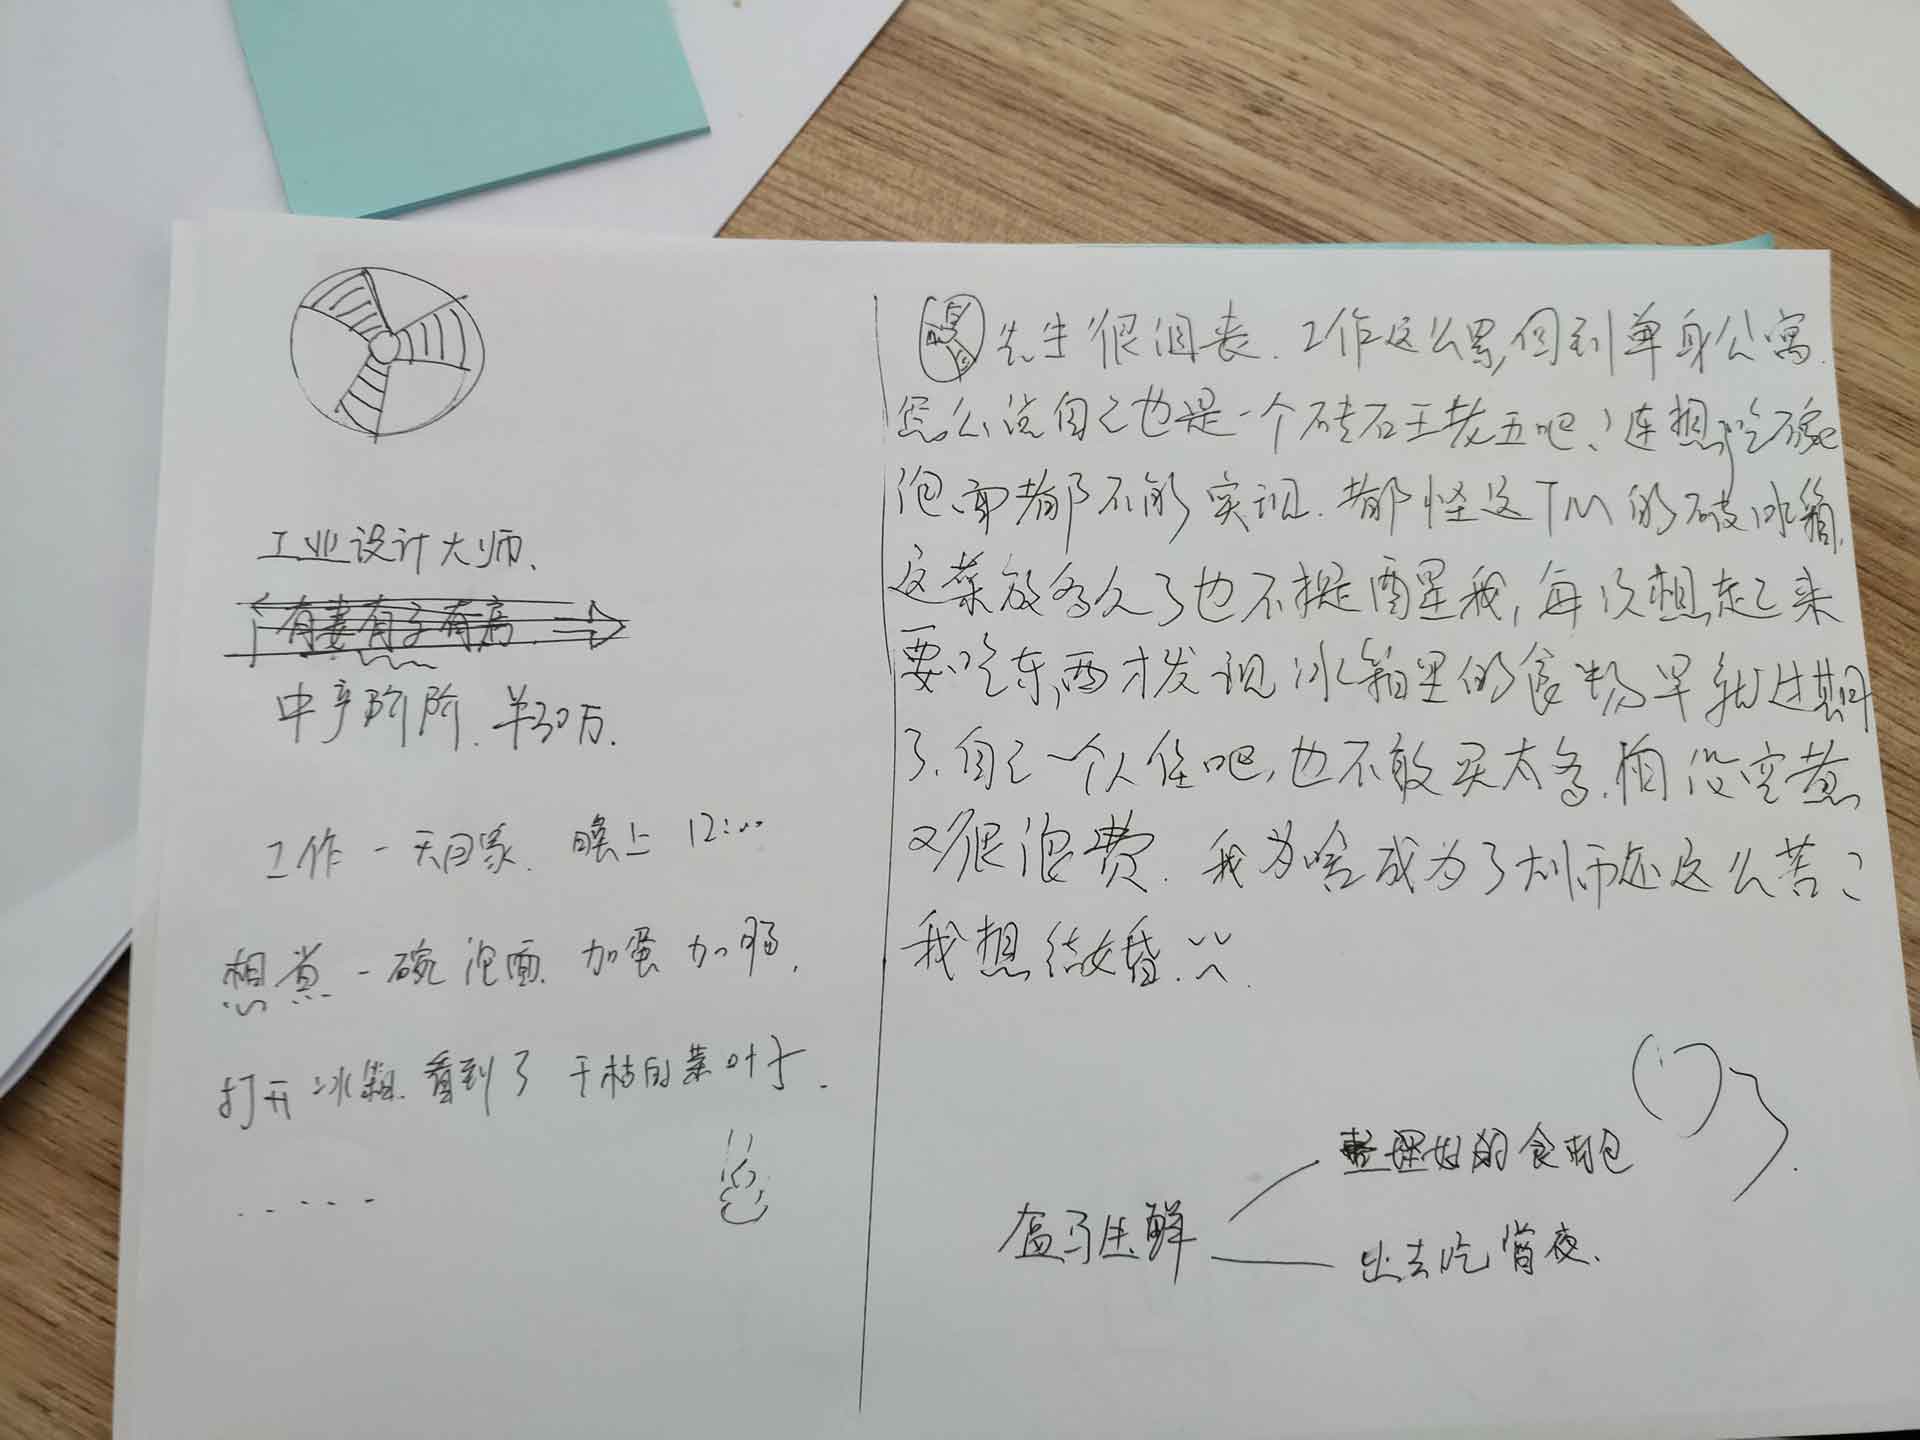 工业设计大师、
有妻有子有房
中产阶阶、年30万.
工作一天回家、晚上 12:00
想煮一碗泡面、加蛋加肠、
打开冰箱.看到了干枯的菜叶子.
.....
先生很沮丧.工作这么累,回到单身公寓.
怎么说自己也是一个砖石王老五吧、连想吃碗
泡面都不能实现.都怪这TM的破冰箱.
这菜放多久了也不提醒我,每次想起来
要吃东西才发现冰箱里的食物早就过期
了.自己一个人住吧,也不敢买太多.怕没空煮
又很浪费.我为啥成为了大师还这么苦?
我想结婚.
盒马生鲜
整理好的食材包
出去吃宵夜.